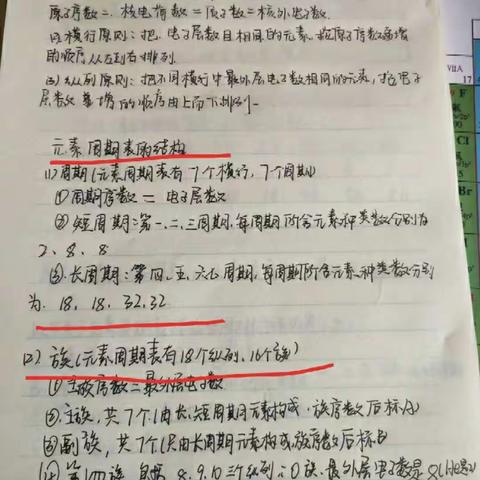 原子序数 = 核电荷数 = 质子数 = 核外电子数.
(2) 横行原则: 把电子层数目相同的元素, 按原子序数递增
的顺序从左到右排列.
(3) 纵列原则: 把不同横行中最外层电子数相同的元素, 按电子
层数 递增的顺序由上而下排列.
元素周期表的结构
(1) 周期 (元素周期表有7个横行, 7个周期)
①周期序数 = 电子层数
②短周期: 第一、二、三周期, 每周期所含元素种类数分别为
2、8、8
③长周期: 第四、五、六、七周期, 每周期所含元素种类数分别
为 18、18、32、32
(2) 族 (元素周期表有18个纵列, 16个族)
①主族序数 = 最外层电子数
②主族, 共7个 (由长、短周期元素构成, 族序数后标A)
③副族, 共7个 (只由长周期元素构成, 族序数后标B)
④第VIII族, 8、9、10三个纵列; 0族, 最外层电子数是8
VIIA
17
F
Cl
Br